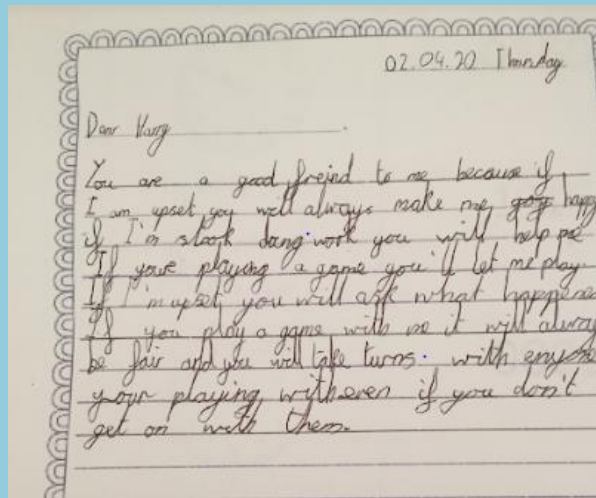 02.04.20 Thursday
Dear Harry
You are a good freind to me because if
I am upset you will always make me happ
if I'm stook doing work you will help me
If your playing a game you'll let me play.
If I'm upset you will ask what happened
If you play a game with me it will alway
be fair and you will take turns. with enyone
your playing with even if you don't
get on with them.